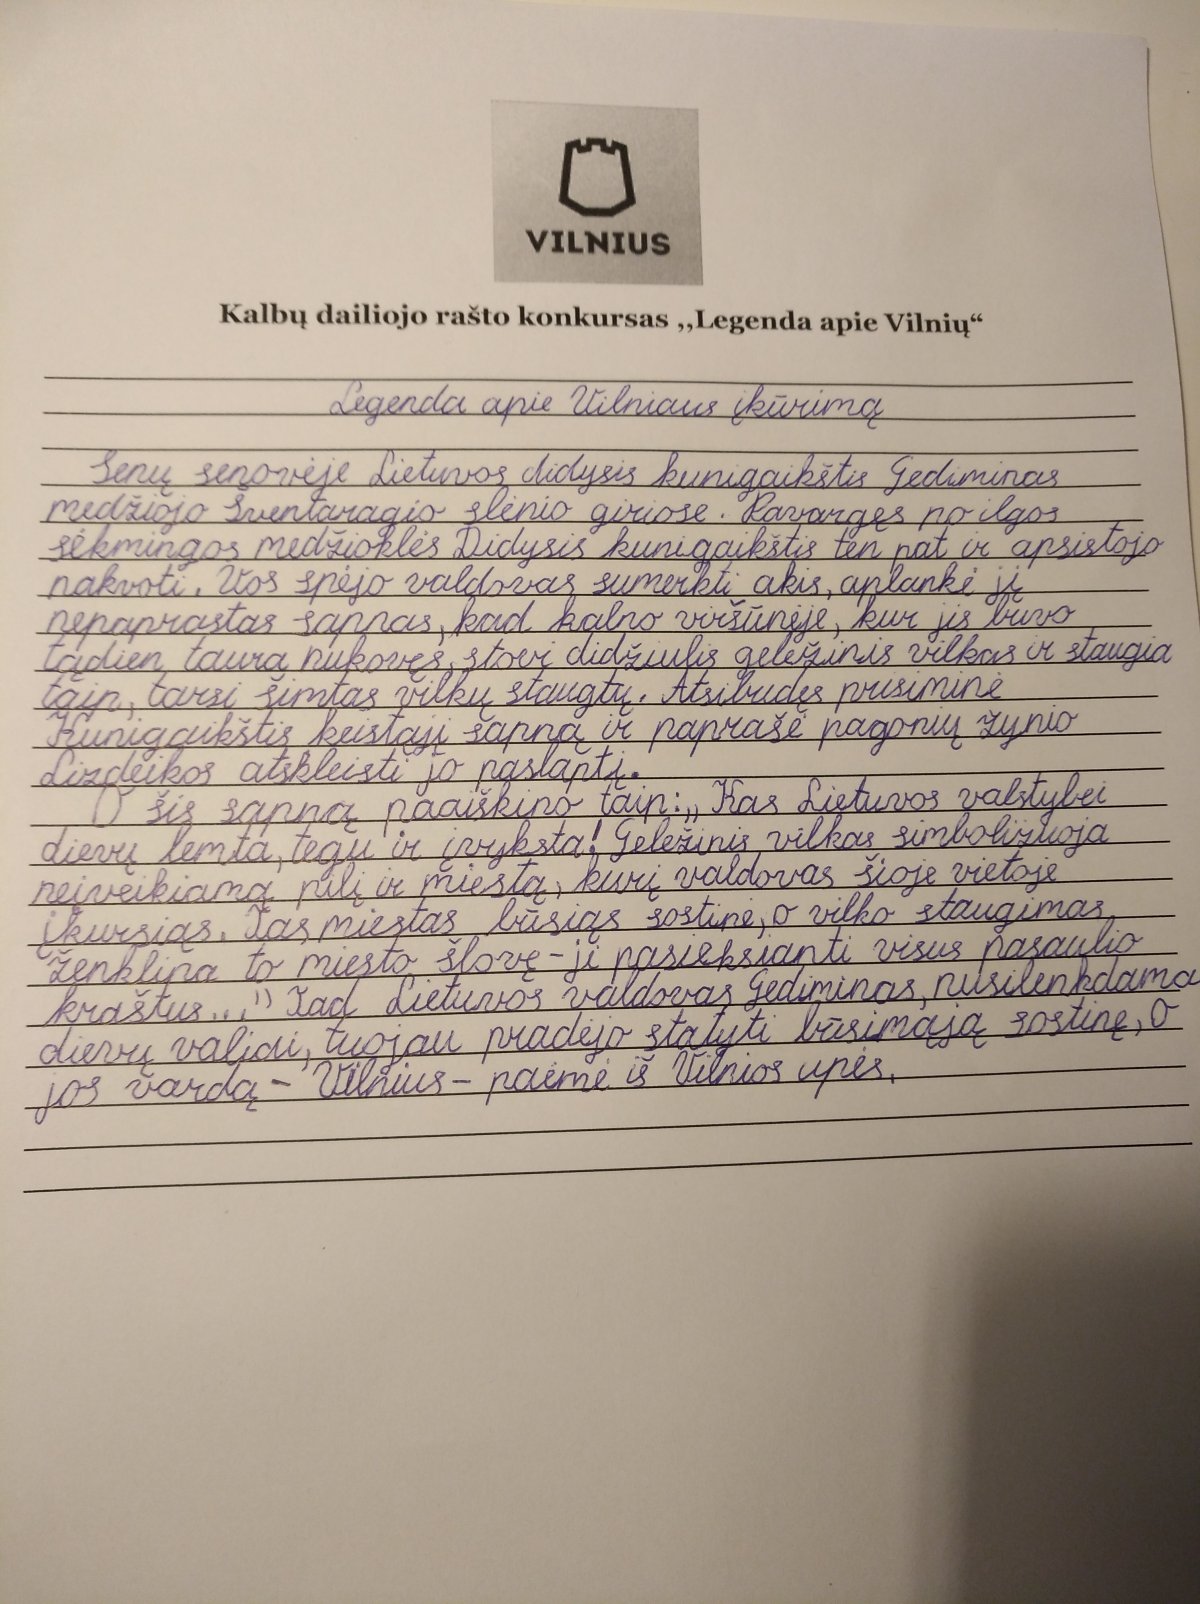 VILNIUS
Kalbų dailiojo rašto konkursas ,,Legenda apie Vilnių“
Legenda apie Vilniaus įkūrimą
Senų senovėje Lietuvos didysis kunigaikštis Gediminas
medžiojo Šventaragio slėnio giriose. Pavargęs po ilgos
sėkmingos medžioklės Didysis kunigaikštis ten pat ir apsistojo
nakvoti. Vos spėjo valdovas sumerkti akis, aplankė jį
nepaprastas sapnas, kad kalno viršūnėje, kur jis buvo
tądien taurą nukovęs, stovi didžiulis geležinis vilkas ir staugia
taip, tarsi šimtas vilkų staugtų. Atsibudęs prisiminė
Kunigaikštis keistąjį sapną ir paprašė pagonių žynio
Lizdeikos atskleisti jo paslaptį.
O šis sapną paaiškino taip: ,,Kas Lietuvos valstybei
dievų lemta, tegu ir įvyksta! Geležinis vilkas simbolizuoja
neįveikiamą pilį ir miestą, kurį valdovas šioje vietoje
įkursiąs. Tas miestas būsiąs sostinė, o vilko staugimas
ženklina to miesto šlovę - ji pasieksianti visus pasaulio
kraštus..." Tad Lietuvos valdovas Gediminas, nusilenkdamas
dievų valiai, tuojau pradėjo statyti būsimąją sostinę, O
jos vardą - Vilnius - paėmė iš Vilnios upės.